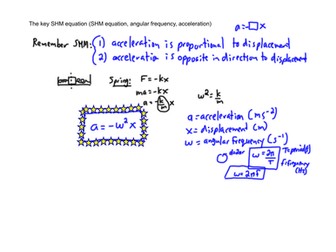 The key SHM equation (SHM equation, angular frequency, acceleration)
a = -□x
Remember SHM: 1) acceleration is proportional to displacement
2) acceleration is opposite in direction to displacement
Spring: F = -kx
ma = -kx
a = -k/m x
ω² = k/m
a = -ω²x
a = acceleration (ms⁻²)
x = displacement (m)
ω = angular frequency (s⁻¹)
ω = 2π/T
T = period (s)
f = frequency (Hz)
ω = 2πf